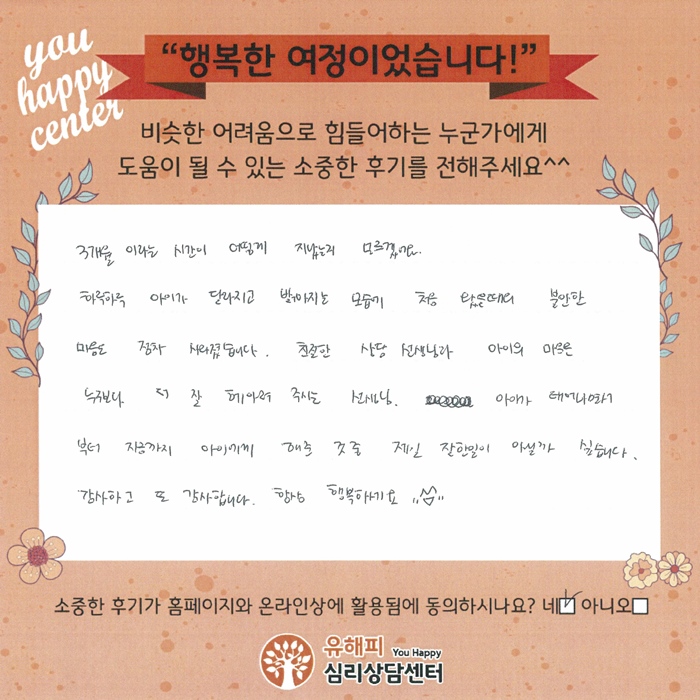 you
happy
center
“행복한 여정이었습니다!”
비슷한 어려움으로 힘들어하는 누군가에게
도움이 될 수 있는 소중한 후기를 전해주세요^^
3개월 이라는 시간이 어떻게 지났는지 모르겠어요.
하루하루 아이가 달라지고 밝아지는 모습에 처음 왔을때의 불안한
마음도 점차 사라졌습니다. 친절한 상담 선생님과 아이의 마음은
누구보다 더 잘 헤아려 주시는 선생님. 아이가 태어나하기
부터 지금까지 아이에게 해준 것 중 제일 잘한일이 아닐까 싶습니다.
감사하고 또 감사합니다. 항상 행복하세요 ,,^^,,
소중한 후기가 홈페이지와 온라인상에 활용됨에 동의하시나요? 네☑ 아니오☐
유해피 You Happy
심리상담센터